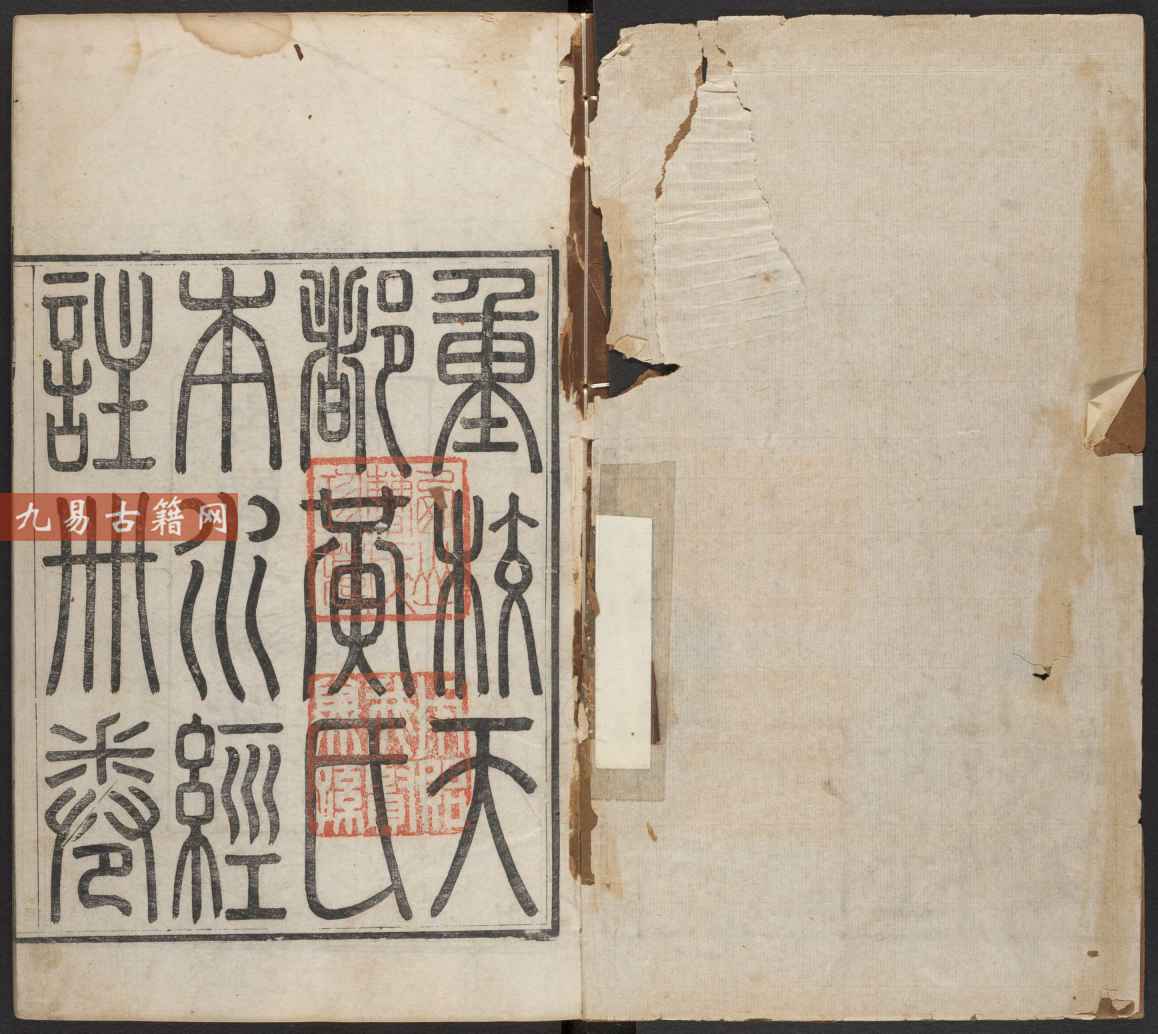 重校天
都黃氏
本水經
註卌卷
九易古籍网